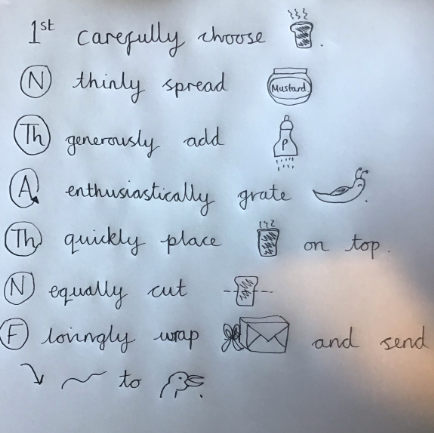 1st carefully choose .
N thinly spread Mustard
Th generously add P
A enthusiastically grate .
Th quickly place on top.
N equally cut
F lovingly wrap and send
to .